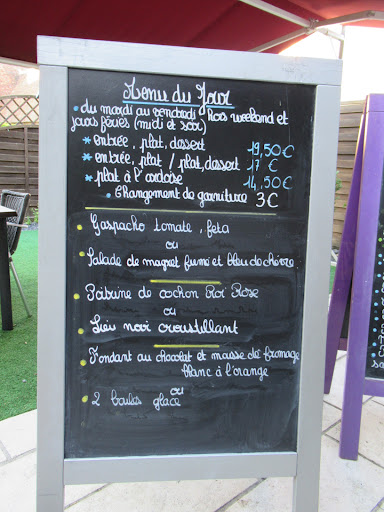 Menu du Jour
• du mardi au vendredi Hors weekend et
jours fériés (midi et soir)
* entrée, plat, dessert 19,50 €
* entrée, plat / plat, dessert 17 €
* plat à l'ardoise 14,50 €
• Changement de garniture 3€
• Gaspacho tomate, feta
ou
• Salade de magret fumé et bleu de chèvre
• Poitrine de cochon Roi Rose
ou
• Lieu noir croustillant
• Fondant au chocolat et mousse de fromage
blanc à l'orange
ou
• 2 boules glace